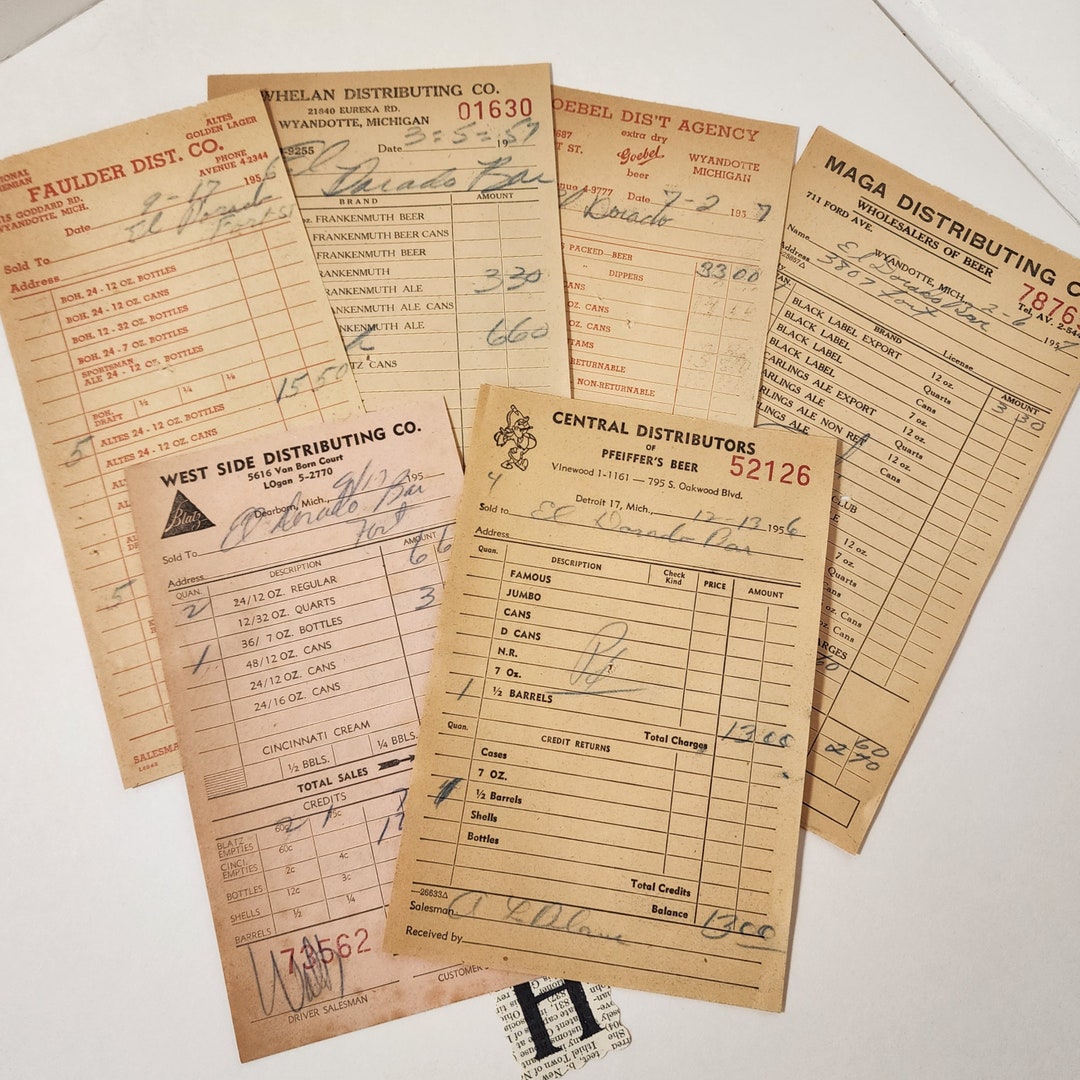 ALTES
GOLDEN LAGER
FAULDER DIST. CO.
PHONE
AVENUE 4-2344
GODDARD RD.
WYANDOTTE, MICH.
Date 9-17 195
El Dorado
Sold To
Fort St
Address
BOH. 24 - 12 OZ. BOTTLES
BOH. 24 - 12 OZ. CANS
BOH. 12 - 32 OZ. BOTTLES
BOH. 24 - 7 OZ. BOTTLES
SPORTSMAN
ALE 24 - 12 OZ. BOTTLES
BOH.
DRAFT ½ ¼ ⅛
5 ALTES 24 - 12 OZ. BOTTLES 15 50
ALTES 24 - 12 OZ. CANS
5
SALESMA
WHELAN DISTRIBUTING CO.
21840 EUREKA RD. 01630
WYANDOTTE, MICHIGAN
-9255 Date 3-5- 1957
El Dorado Bar
BRAND AMOUNT
OZ. FRANKENMUTH BEER
FRANKENMUTH BEER CANS
FRANKENMUTH BEER
RANKENMUTH
RANKENMUTH ALE 3 30
RANKENMUTH ALE CANS
NKENMUTH ALE 6 60
TZ CANS
OEBEL DIS'T AGENCY
687 extra dry
T ST. Goebel WYANDOTTE
beer MICHIGAN
nue 4-9777 Date 7-2 1957
El Dorado
S PACKED—BEER
DIPPERS 33 00
ANS
OZ. CANS
OZ. CANS
TAMS
RETURNABLE
NON-RETURNABLE
MAGA DISTRIBUTING C
WHOLESALERS OF BEER
711 FORD AVE. WYANDOTTE, MICH. 7876
Tel. AV. 2-54
Name El Dorado Bar
Address 3807 Fort 195
BRAND License AMOUNT
BLACK LABEL EXPORT 12 oz. 3 30
BLACK LABEL Quarts
BLACK LABEL Cans
BLACK LABEL 7 oz.
CARLINGS ALE EXPORT 12 oz.
RLINGS ALE NON RET 12 oz.
RLINGS ALE Quarts
LINGS ALE Cans
CLUB
12 oz.
7 oz.
Quarts
oz. Cans
oz. Cans
ARGES
60
60
2 70
WEST SIDE DISTRIBUTING CO.
5616 Van Born Court
LOgan 5-2770
Blatz
Dearborn, Mich., 9/17 195
Sold To El Dorado Bar
Address Fort
QUAN. DESCRIPTION AMOUNT
2 24/12 OZ. REGULAR 6 6
12/32 OZ. QUARTS 3
36/ 7 OZ. BOTTLES
1 48/12 OZ. CANS
24/12 OZ. CANS
24/16 OZ. CANS
CINCINNATI CREAM
½ BBLS. ¼ BBLS.
TOTAL SALES
CREDITS
BLATZ
EMPTIES 60c 2 1
CINCI.
EMPTIES 60c
BOTTLES 2c 4c
SHELLS 12c 3c
BARRELS ½ ¼
73562
DRIVER SALESMAN CUSTOMER
CENTRAL DISTRIBUTORS
OF
PFEIFFER'S BEER 52126
VInewood 1-1161 — 795 S. Oakwood Blvd.
4
Detroit 17, Mich., 12-13 1956
Sold to El Dorado Bar
Address
Quan. DESCRIPTION Check Kind PRICE AMOUNT
FAMOUS
JUMBO
CANS
D CANS
N.R.
7 Oz.
1 ½ BARRELS
Total Charges 13 00
Quan. CREDIT RETURNS
Cases
7 OZ.
1 ½ Barrels
Shells
Bottles
Total Credits
—26633Δ
Balance 13 00
Salesman
Received by
H